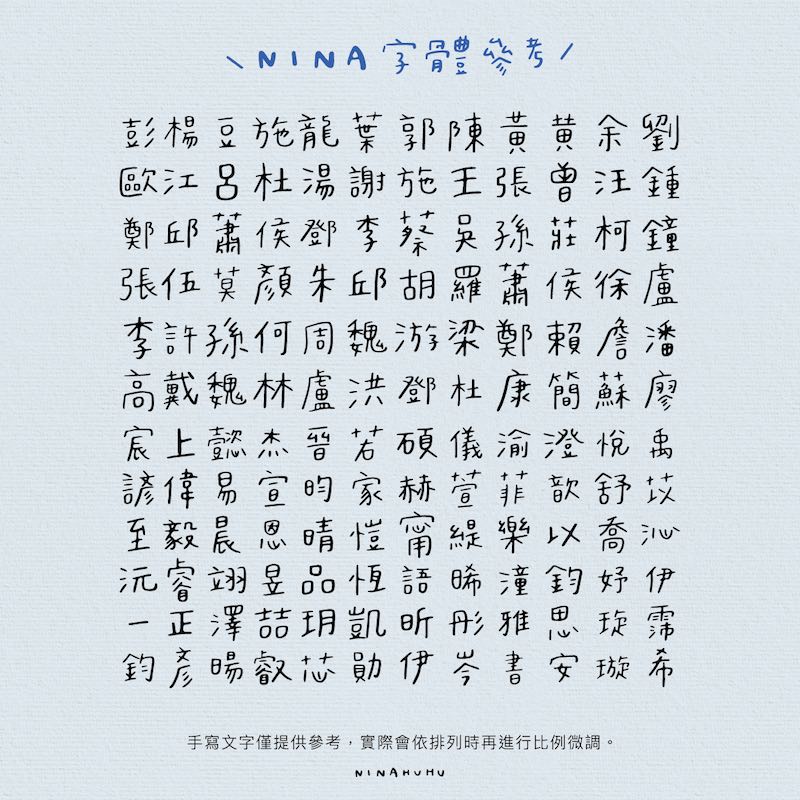 NINA 字體參考
彭楊豆施龍葉郭陳黃黃余劉
歐江呂杜湯謝施王張曾汪鍾
鄭邱蕭侯鄧李蔡吳孫莊柯鐘
張伍莫顏朱邱胡羅蕭侯徐盧
李許孫何周魏游梁鄭賴詹潘
高戴魏林盧洪鄧杜康簡蘇廖
宸上懿杰晉若碩儀渝澄悅禹
諺偉易宣昀家赫萱菲歆舒苡
至毅晨恩晴愷甯緹樂以喬沁
沅睿翊昱品恆語晞潼鈞妤伊
一正澤喆玥凱昕彤雅思琁霈
鈞彥暘叡芯勛伊岑書安璇希
手寫文字僅提供參考，實際會依排列時再進行比例微調。
NINAHUHU